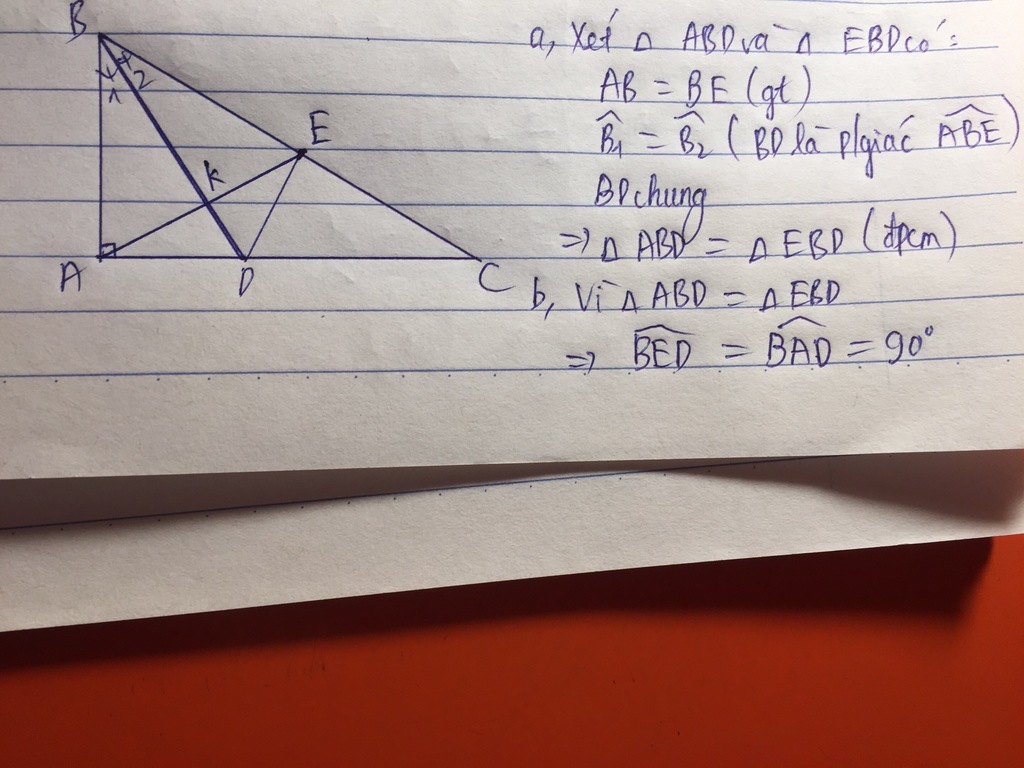 B
1
2
E
K
A
D
C
a, Xét Δ ABD và Δ EBD có:
AB = BE (gt)
B̂₁ = B̂₂ ( BD là p/giác \widehat{ABE})
BD chung
=> Δ ABD = Δ EBD (đpcm)
b, Vì Δ ABD = Δ EBD
=> \widehat{BED} = \widehat{BAD} = 90°